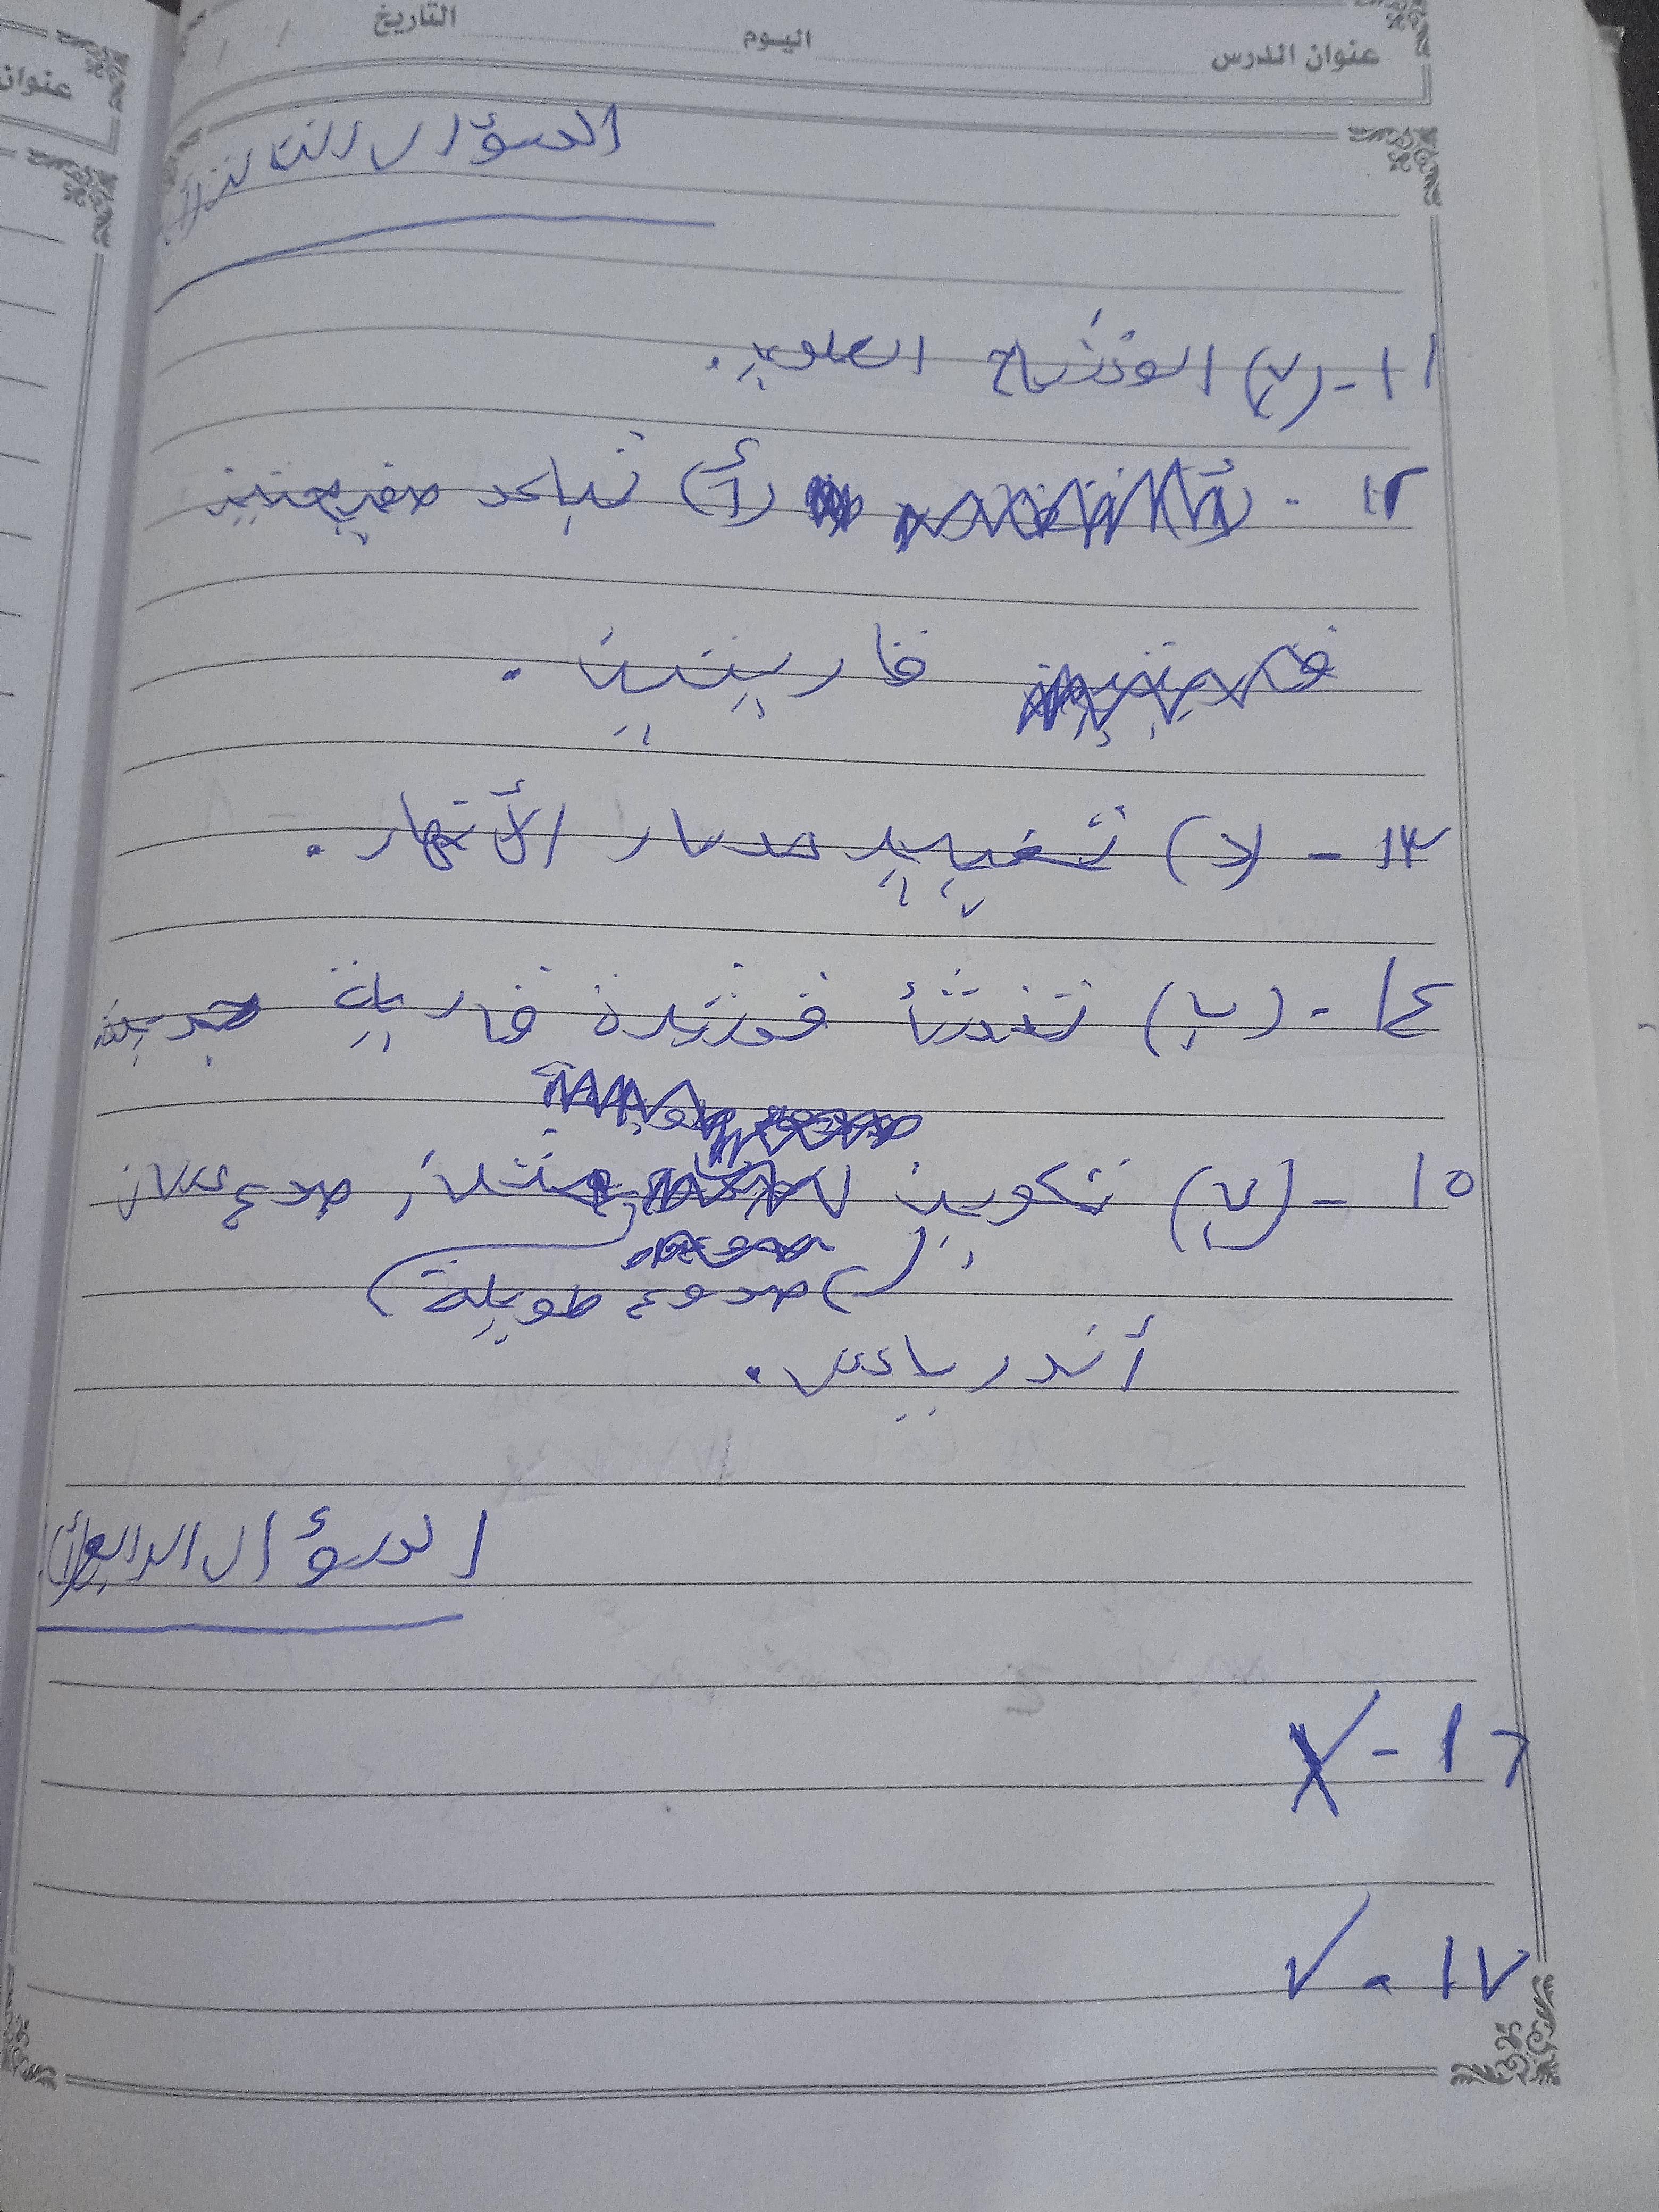 عنوان الدرس اليوم التاريخ / /
عنوان
السؤال الثالث
١١ - (ب) الوشاح العلوي.
١٢ - (أ) تباعد صفيحتين
قاريتين.
١٣ - (د) تغيير مسار الأنهار.
١٤ - (ب) تنشأ قشرة قارية جديدة
١٥ - (ب) تكوين مثل صدع سان
(صدوع طويلة)
أندرياس.
السؤال الرابع (أ)
١٦ - X
١٧ - ✓